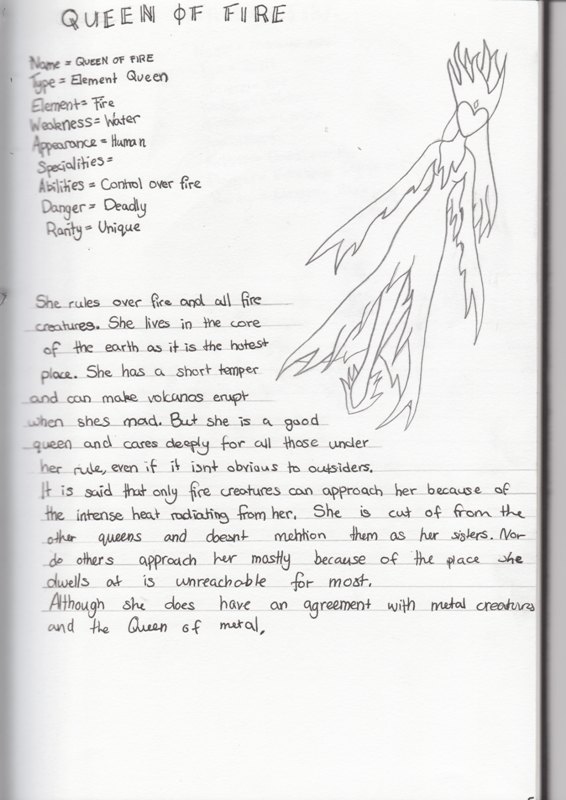 QUEEN OF FIRE
Name = QUEEN OF FIRE
Type = Element Queen
Element = Fire
Weakness = Water
Appearance = Human
Specialities =
Abilities = Control over fire
Danger = Deadly
Rarity = Unique
She rules over fire and all fire
creatures. She lives in the core
of the earth as it is the hotest
place. She has a short temper
and can make volkanos erupt
when shes mad. But she is a good
queen and cares deeply for all those under
her rule, even if it isnt obvious to outsiders.
It is said that only fire creatures can approach her because of
the intense heat radiating from her. She is cut of from the
other queens and doesnt mention them as her sisters. Nor
do others approach her mostly because of the place she
dwells at is unreachable for most.
Although she does have an agreement with metal creatures
and the Queen of metal.